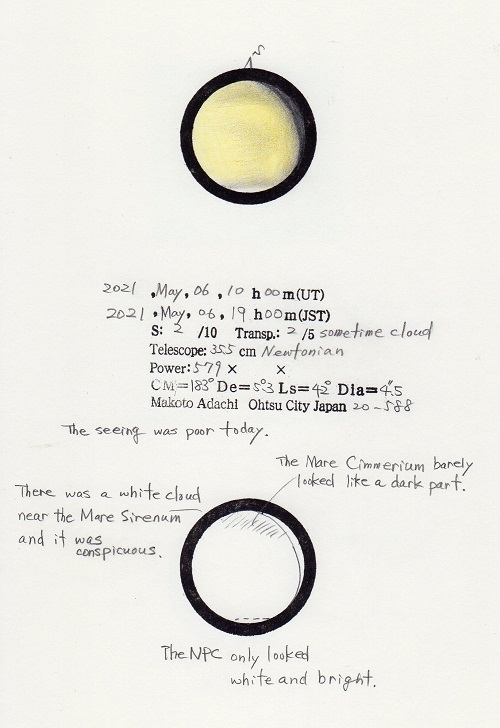 N
2021 , May, 06 , 10 h 00 m (UT)
2021 , May, 06 , 19 h 00 m (JST)
S: 2 /10 Transp.: 2 /5 sometime cloud
Telescope: 355 cm Newtonian
Power: 579 × ×
CM=183° De=5°.3 Ls=42° Dia=4".5
Makoto Adachi Ohtsu City Japan 20-588
The seeing was poor today.
The Mare Cimmerium barely
looked like a dark part.
There was a white cloud
near the Mare Sirenum
and it was
conspicuous.
The NPC only looked
white and bright.